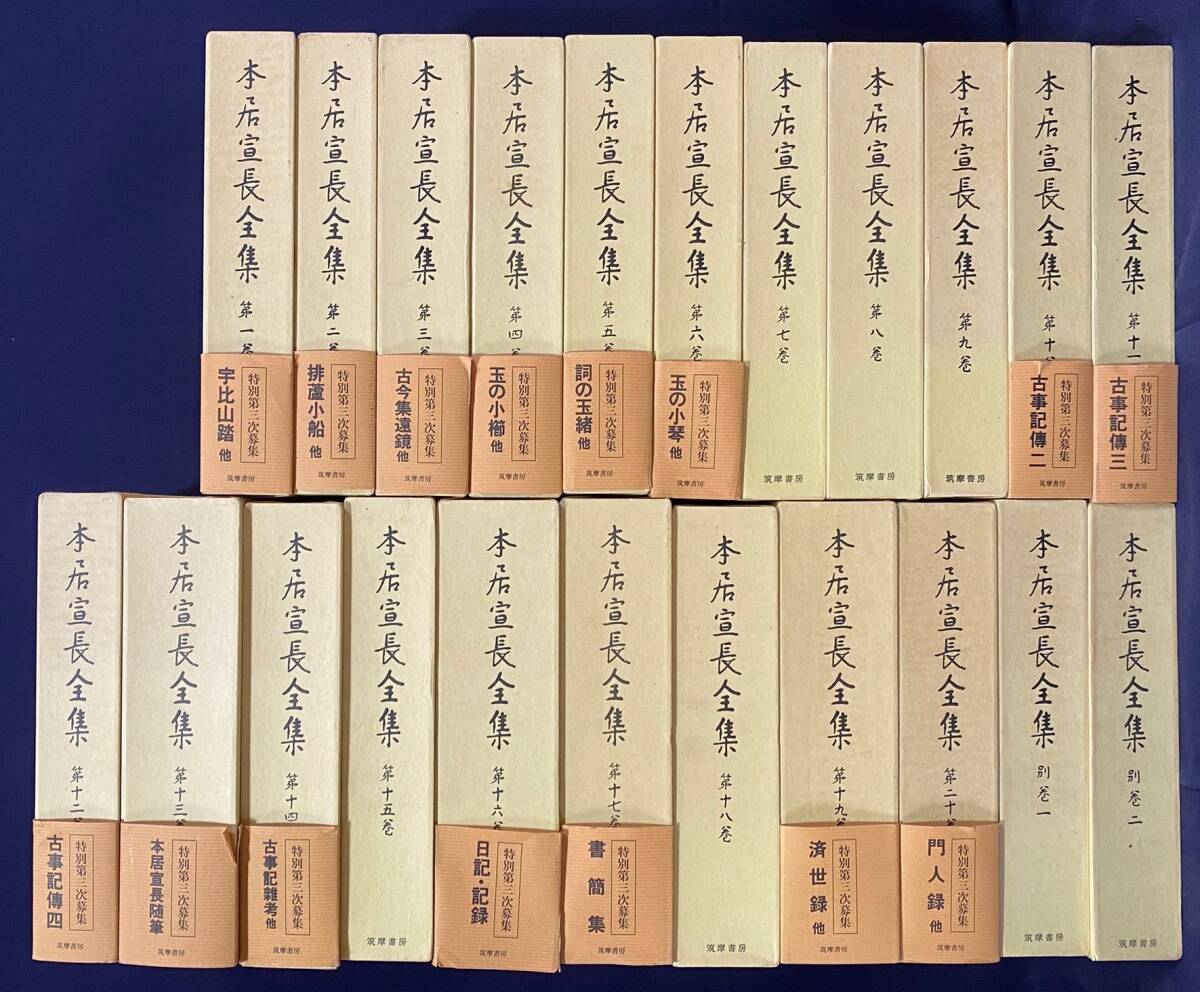 本居宣長全集 第一巻
特別第三次募集
宇比山踏 他
筑摩書房
本居宣長全集 第二巻
特別第三次募集
排蘆小船 他
筑摩書房
本居宣長全集 第三巻
特別第三次募集
古今集遠鏡他
筑摩書房
本居宣長全集 第四巻
特別第三次募集
玉の小櫛 他
筑摩書房
本居宣長全集 第五巻
特別第三次募集
詞の玉緒 他
筑摩書房
本居宣長全集 第六巻
特別第三次募集
玉の小琴 他
筑摩書房
本居宣長全集 第七巻
筑摩書房
本居宣長全集 第八巻
筑摩書房
本居宣長全集 第九巻
筑摩書房
本居宣長全集 第十巻
特別第三次募集
古事記傳二
筑摩書房
本居宣長全集 第十一
特別第三次募集
古事記傳三
筑摩書房
本居宣長全集 第十二巻
特別第三次募集
古事記傳四
筑摩書房
本居宣長全集 第十三巻
特別第三次募集
本居宣長随筆
筑摩書房
本居宣長全集 第十四
特別第三次募集
古事記雜考他
筑摩書房
本居宣長全集 第十五巻
筑摩書房
本居宣長全集 第十六巻
特別第三次募集
日記・記録
筑摩書房
本居宣長全集 第十七巻
特別第三次募集
書簡集
筑摩書房
本居宣長全集 第十八巻
筑摩書房
本居宣長全集 第十九巻
特別第三次募集
済世録 他
筑摩書房
本居宣長全集 第二十巻
特別第三次募集
門人録 他
筑摩書房
本居宣長全集 別巻一
筑摩書房
本居宣長全集 別巻二
筑摩書房